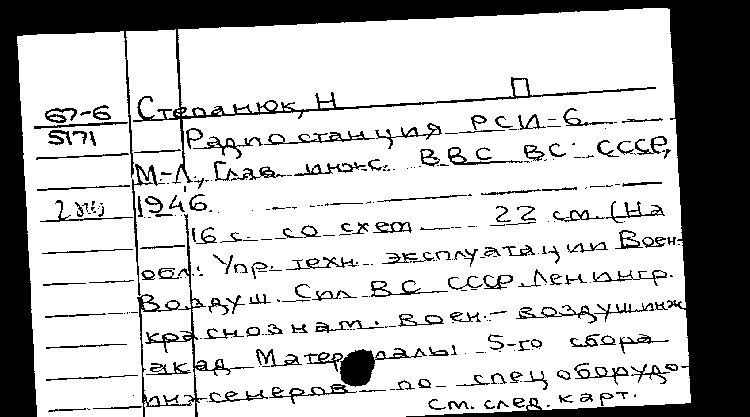 П
67-6 Степанюк, Н
5171 Радиостанция РСИ-6.
М-Л, Глав. инж. ВВС ВС СССР,
1946.
16 с. со схем. 22 см. (На
обл: Упр. техн. эксплуатации Воен-
Воздуш. Сил ВС СССР. Ленингр.
краснознам. воен.-воздуш. инж
акад Материалы 5-го сбора
инженеров по спецоборудо-
см. след. карт.